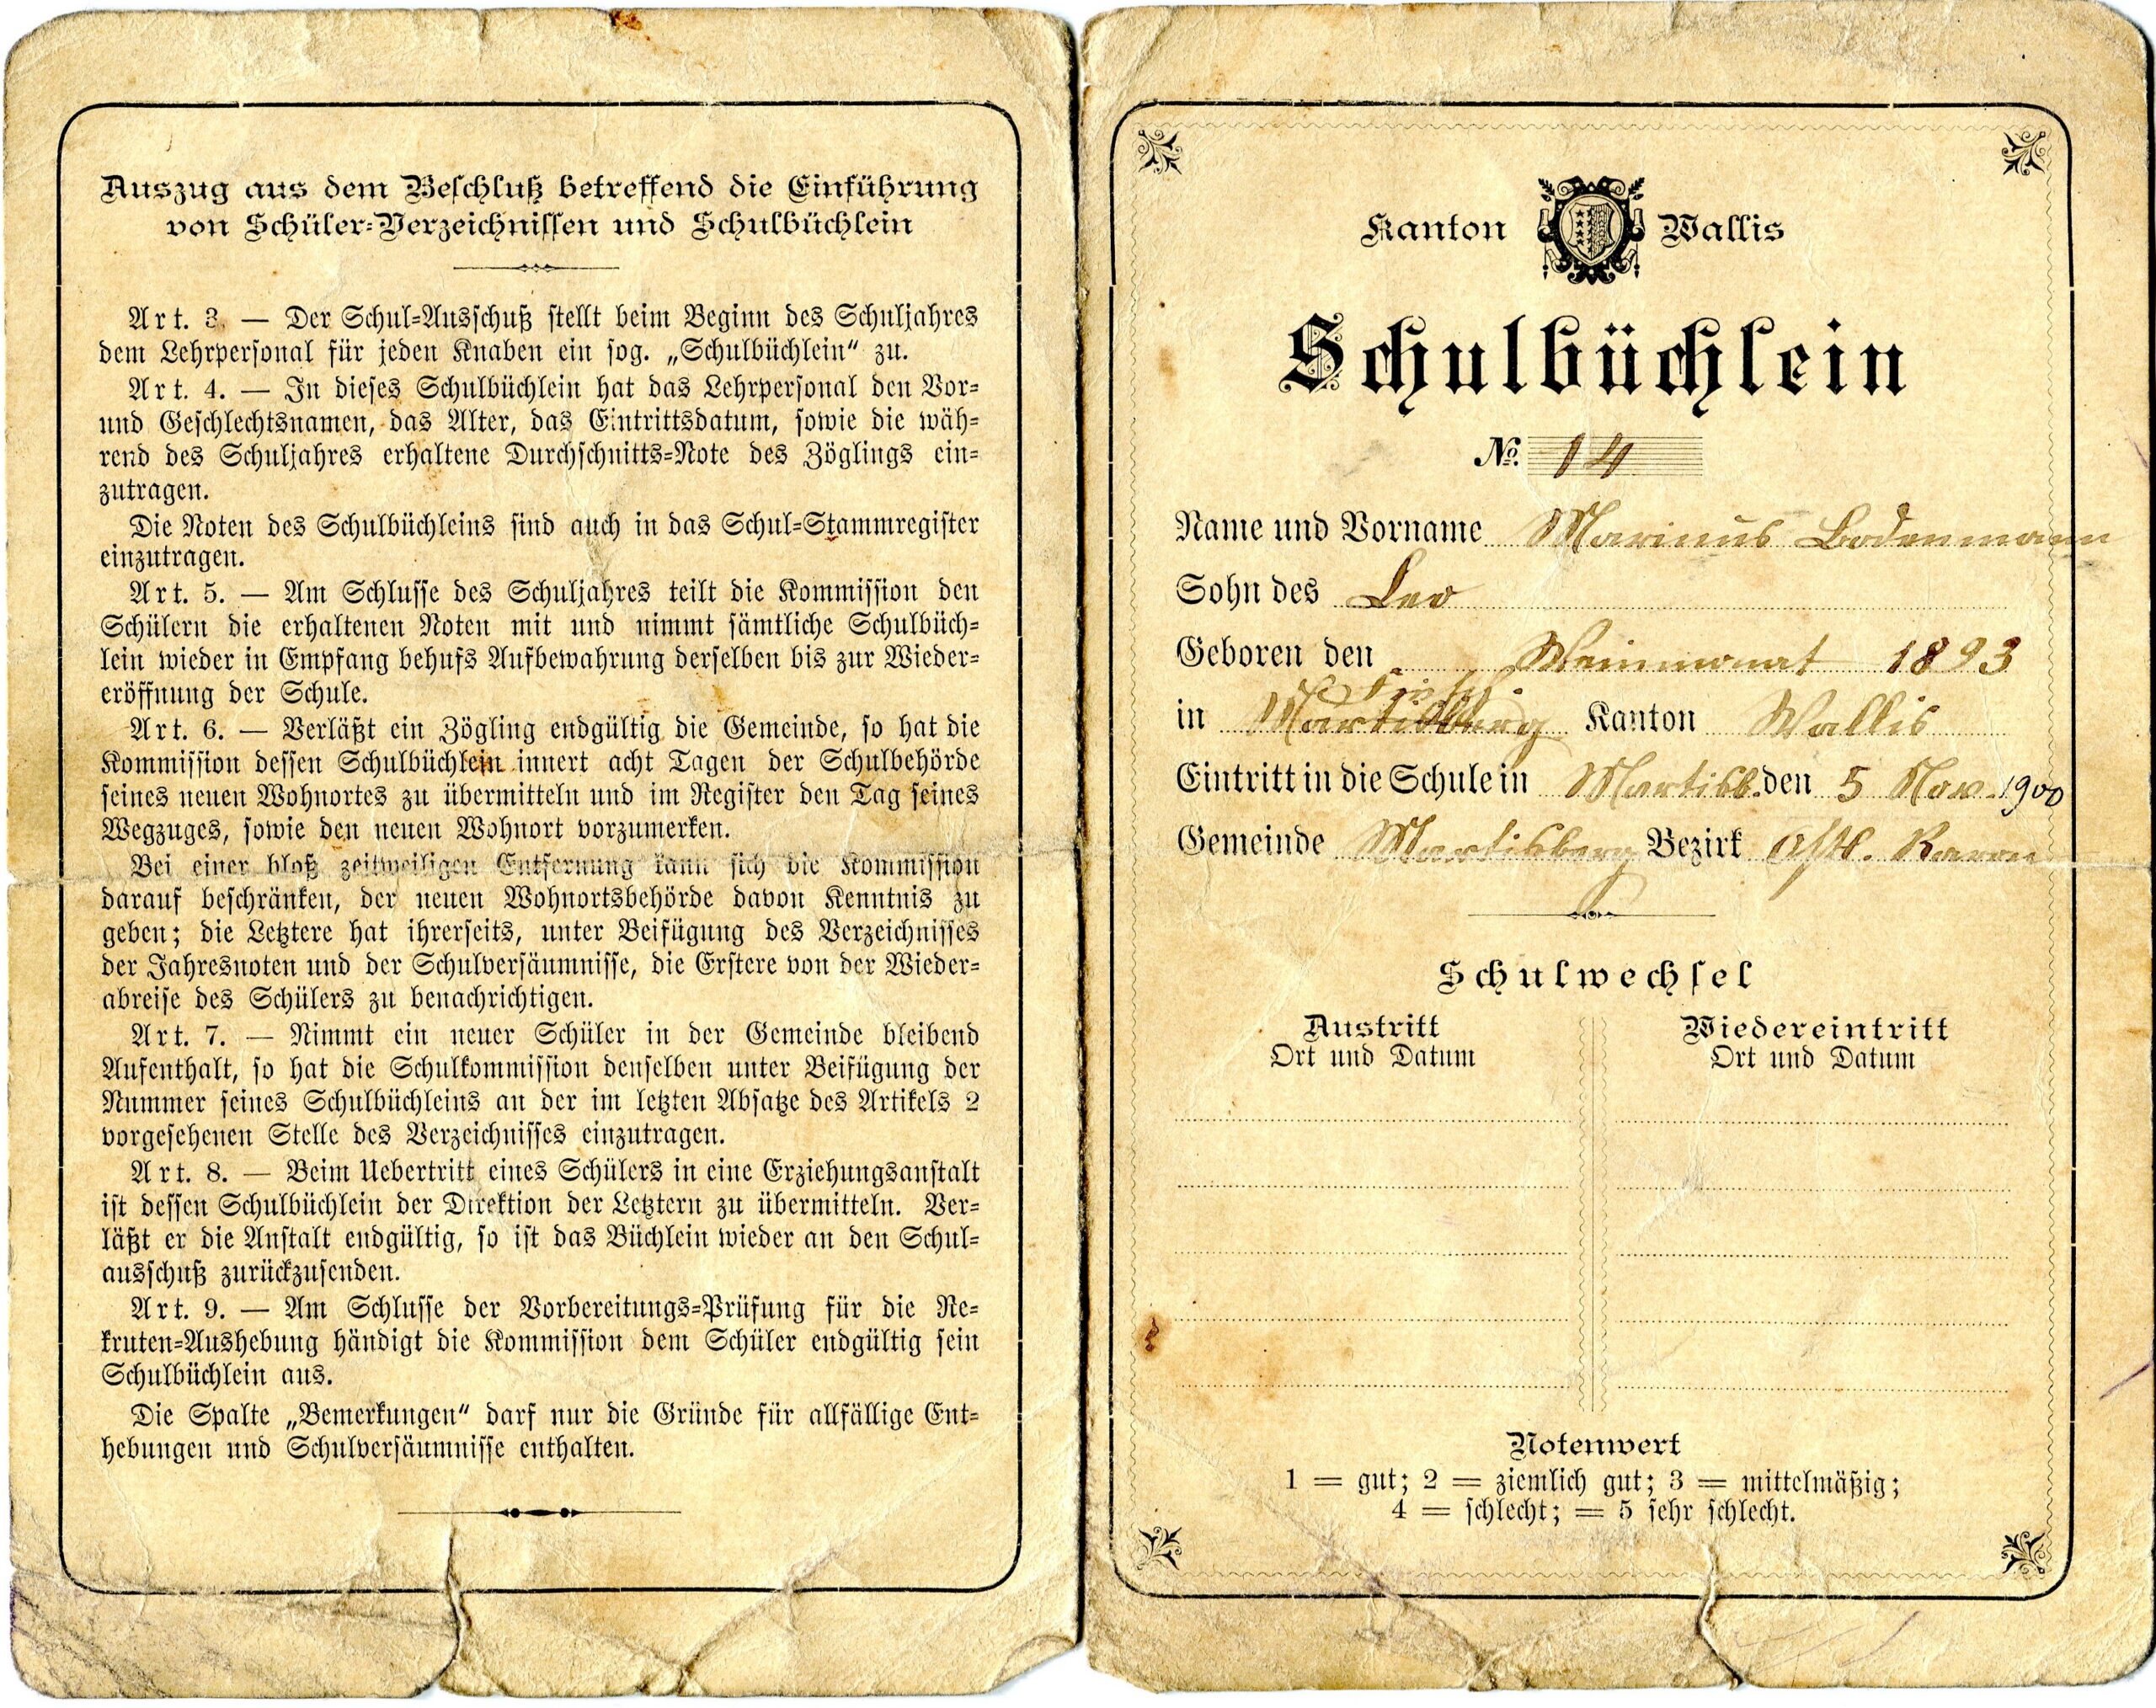 Auszug aus dem Beschluß betreffend die Einführung
von Schüler-Verzeichnissen und Schulbüchlein
Art. 3. — Der Schul-Ausschuß stellt beim Beginn des Schuljahres
dem Lehrpersonal für jeden Knaben ein sog. „Schulbüchlein“ zu.
Art. 4. — In dieses Schulbüchlein hat das Lehrpersonal den Vor-
und Geschlechtsnamen, das Alter, das Eintrittsdatum, sowie die wäh-
rend des Schuljahres erhaltene Durchschnitts-Note des Zöglings ein-
zutragen.
Die Noten des Schulbüchleins sind auch in das Schul-Stammregister
einzutragen.
Art. 5. — Am Schlusse des Schuljahres teilt die Kommission den
Schülern die erhaltenen Noten mit und nimmt sämtliche Schulbüch-
lein wieder in Empfang behufs Aufbewahrung derselben bis zur Wieder-
eröffnung der Schule.
Art. 6. — Verläßt ein Zögling endgültig die Gemeinde, so hat die
Kommission dessen Schulbüchlein innert acht Tagen der Schulbehörde
seines neuen Wohnortes zu übermitteln und im Register den Tag seines
Wegzuges, sowie den neuen Wohnort vorzumerken.
Bei einer bloß zeitweiligen Entfernung kann sich die Kommission
darauf beschränken, der neuen Wohnortsbehörde davon Kenntnis zu
geben; die Letztere hat ihrerseits, unter Beifügung des Verzeichnisses
der Jahresnoten und der Schulversäumnisse, die Erstere von der Wieder-
abreise des Schülers zu benachrichtigen.
Art. 7. — Nimmt ein neuer Schüler in der Gemeinde bleibend
Aufenthalt, so hat die Schulkommission denselben unter Beifügung der
Nummer seines Schulbüchleins an der im letzten Absatze des Artikels 2
vorgesehenen Stelle des Verzeichnisses einzutragen.
Art. 8. — Beim Uebertritt eines Schülers in eine Erziehungsanstalt
ist dessen Schulbüchlein der Direktion der Letztern zu übermitteln. Ver-
läßt er die Anstalt endgültig, so ist das Büchlein wieder an den Schul-
ausschuß zurückzusenden.
Art. 9. — Am Schlusse der Vorbereitungs-Prüfung für die Re-
kruten-Aushebung händigt die Kommission dem Schüler endgültig sein
Schulbüchlein aus.
Die Spalte „Bemerkungen“ darf nur die Gründe für allfällige Ent-
hebungen und Schulversäumnisse enthalten.
Kanton Wallis
Schulbüchlein
No. 14
Name und Vorname Marinus Bodenmann
Sohn des Leo
Geboren den Weinmonat 1893
in Martisberg Kanton Wallis
Eintritt in die Schule in Martisb. den 5 Nov. 1900
Gemeinde Martisberg Bezirk Östl. Raron
Schulwechsel
Austritt
Ort und Datum
Wiedereintritt
Ort und Datum
Notenwert
1 = gut; 2 = ziemlich gut; 3 = mittelmäßig;
4 = schlecht; = 5 sehr schlecht.